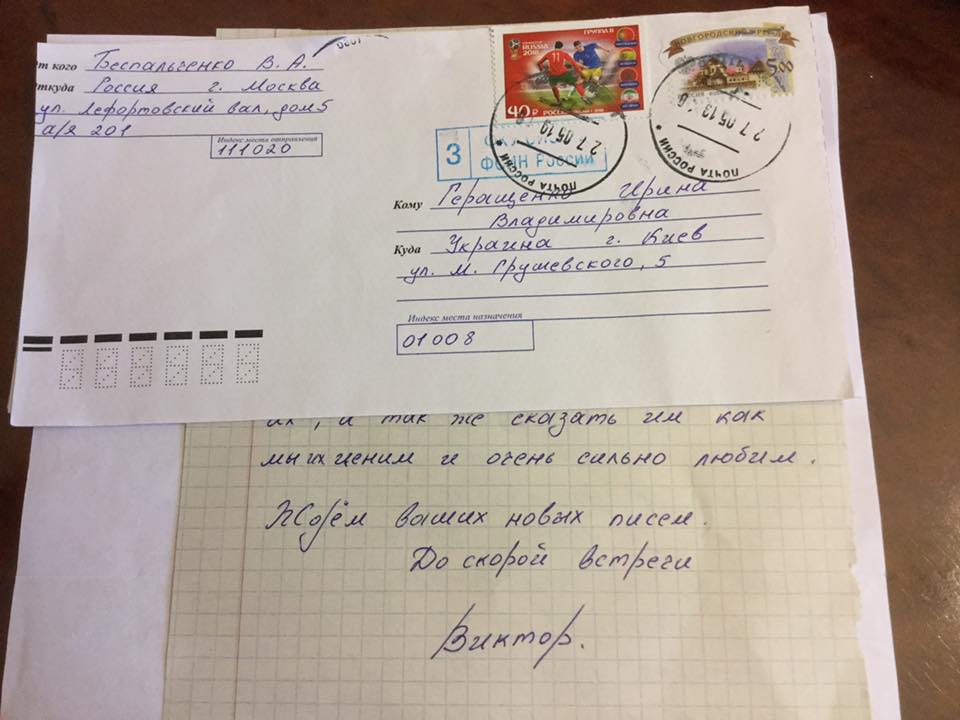 от кого Беспальченко В. А.
откуда Россия г. Москва
ул. Лефортовский вал, дом 5
а/я 201
Индекс места отправления
111020
RUSSIA 2018
ГРУППА B
40₽ РОССИЯ
НОВГОРОДСКИЙ КРЕМЛЬ
5,00
27 05 19
ПОЧТА РОССИИ
27 05 19
ПОЧТА РОССИИ
3
ФСИН России
Кому Геращенко Ирина
Владимировна
Куда Украина г. Киев
ул. М. Грушевского, 5
Индекс места назначения
01008
их, и так же сказать им как
мы их ценим и очень сильно любим.
Ждём ваших новых писем.
До скорой встречи
Виктор.